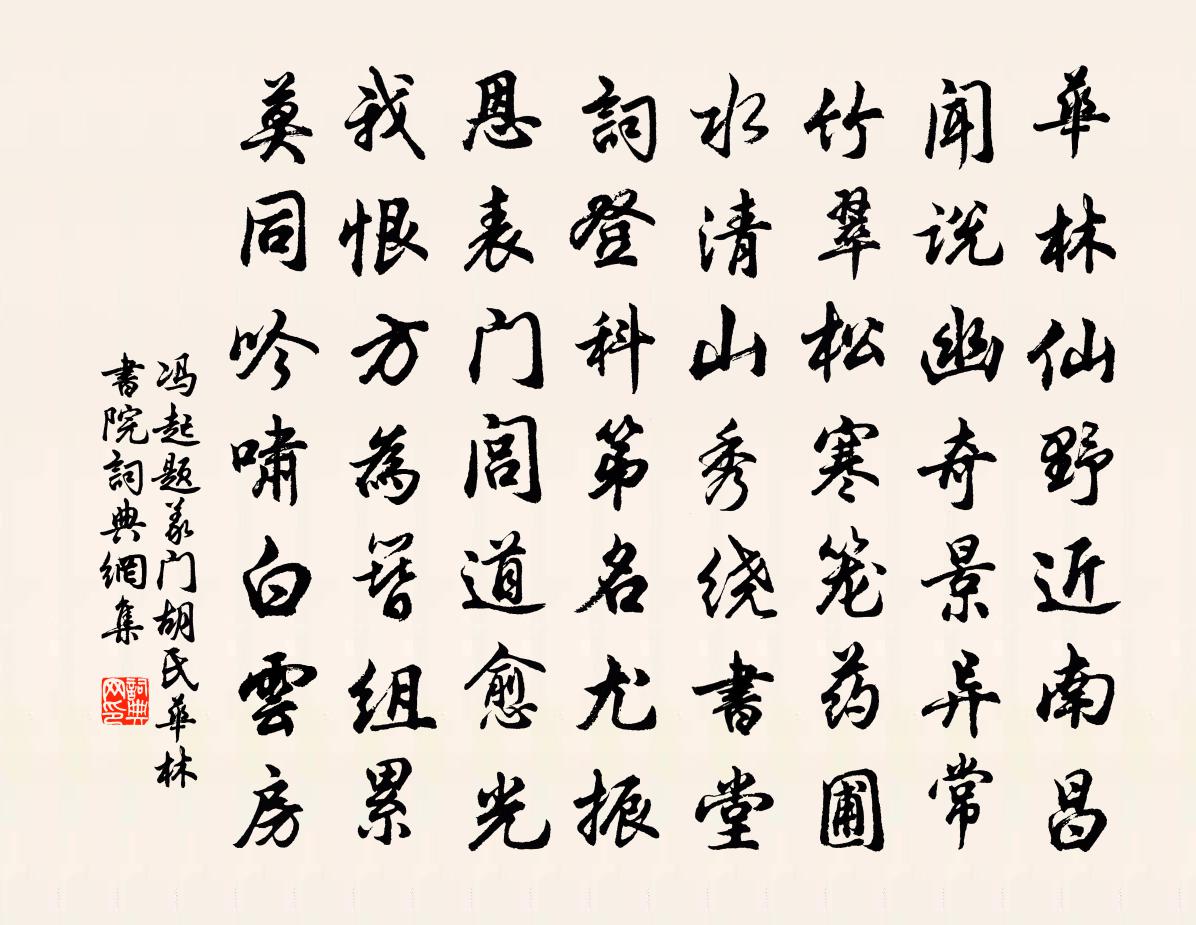 華林仙野近南昌
闻说幽奇景异常
竹翠松寒笼药圃
水清山秀绕書堂
詞登科第名尤振
恩表门闾道愈光
我恨方為簪组累
莫同吟啸白雲房
冯起题义门胡氏華林
書院詞典網集
詞典网印